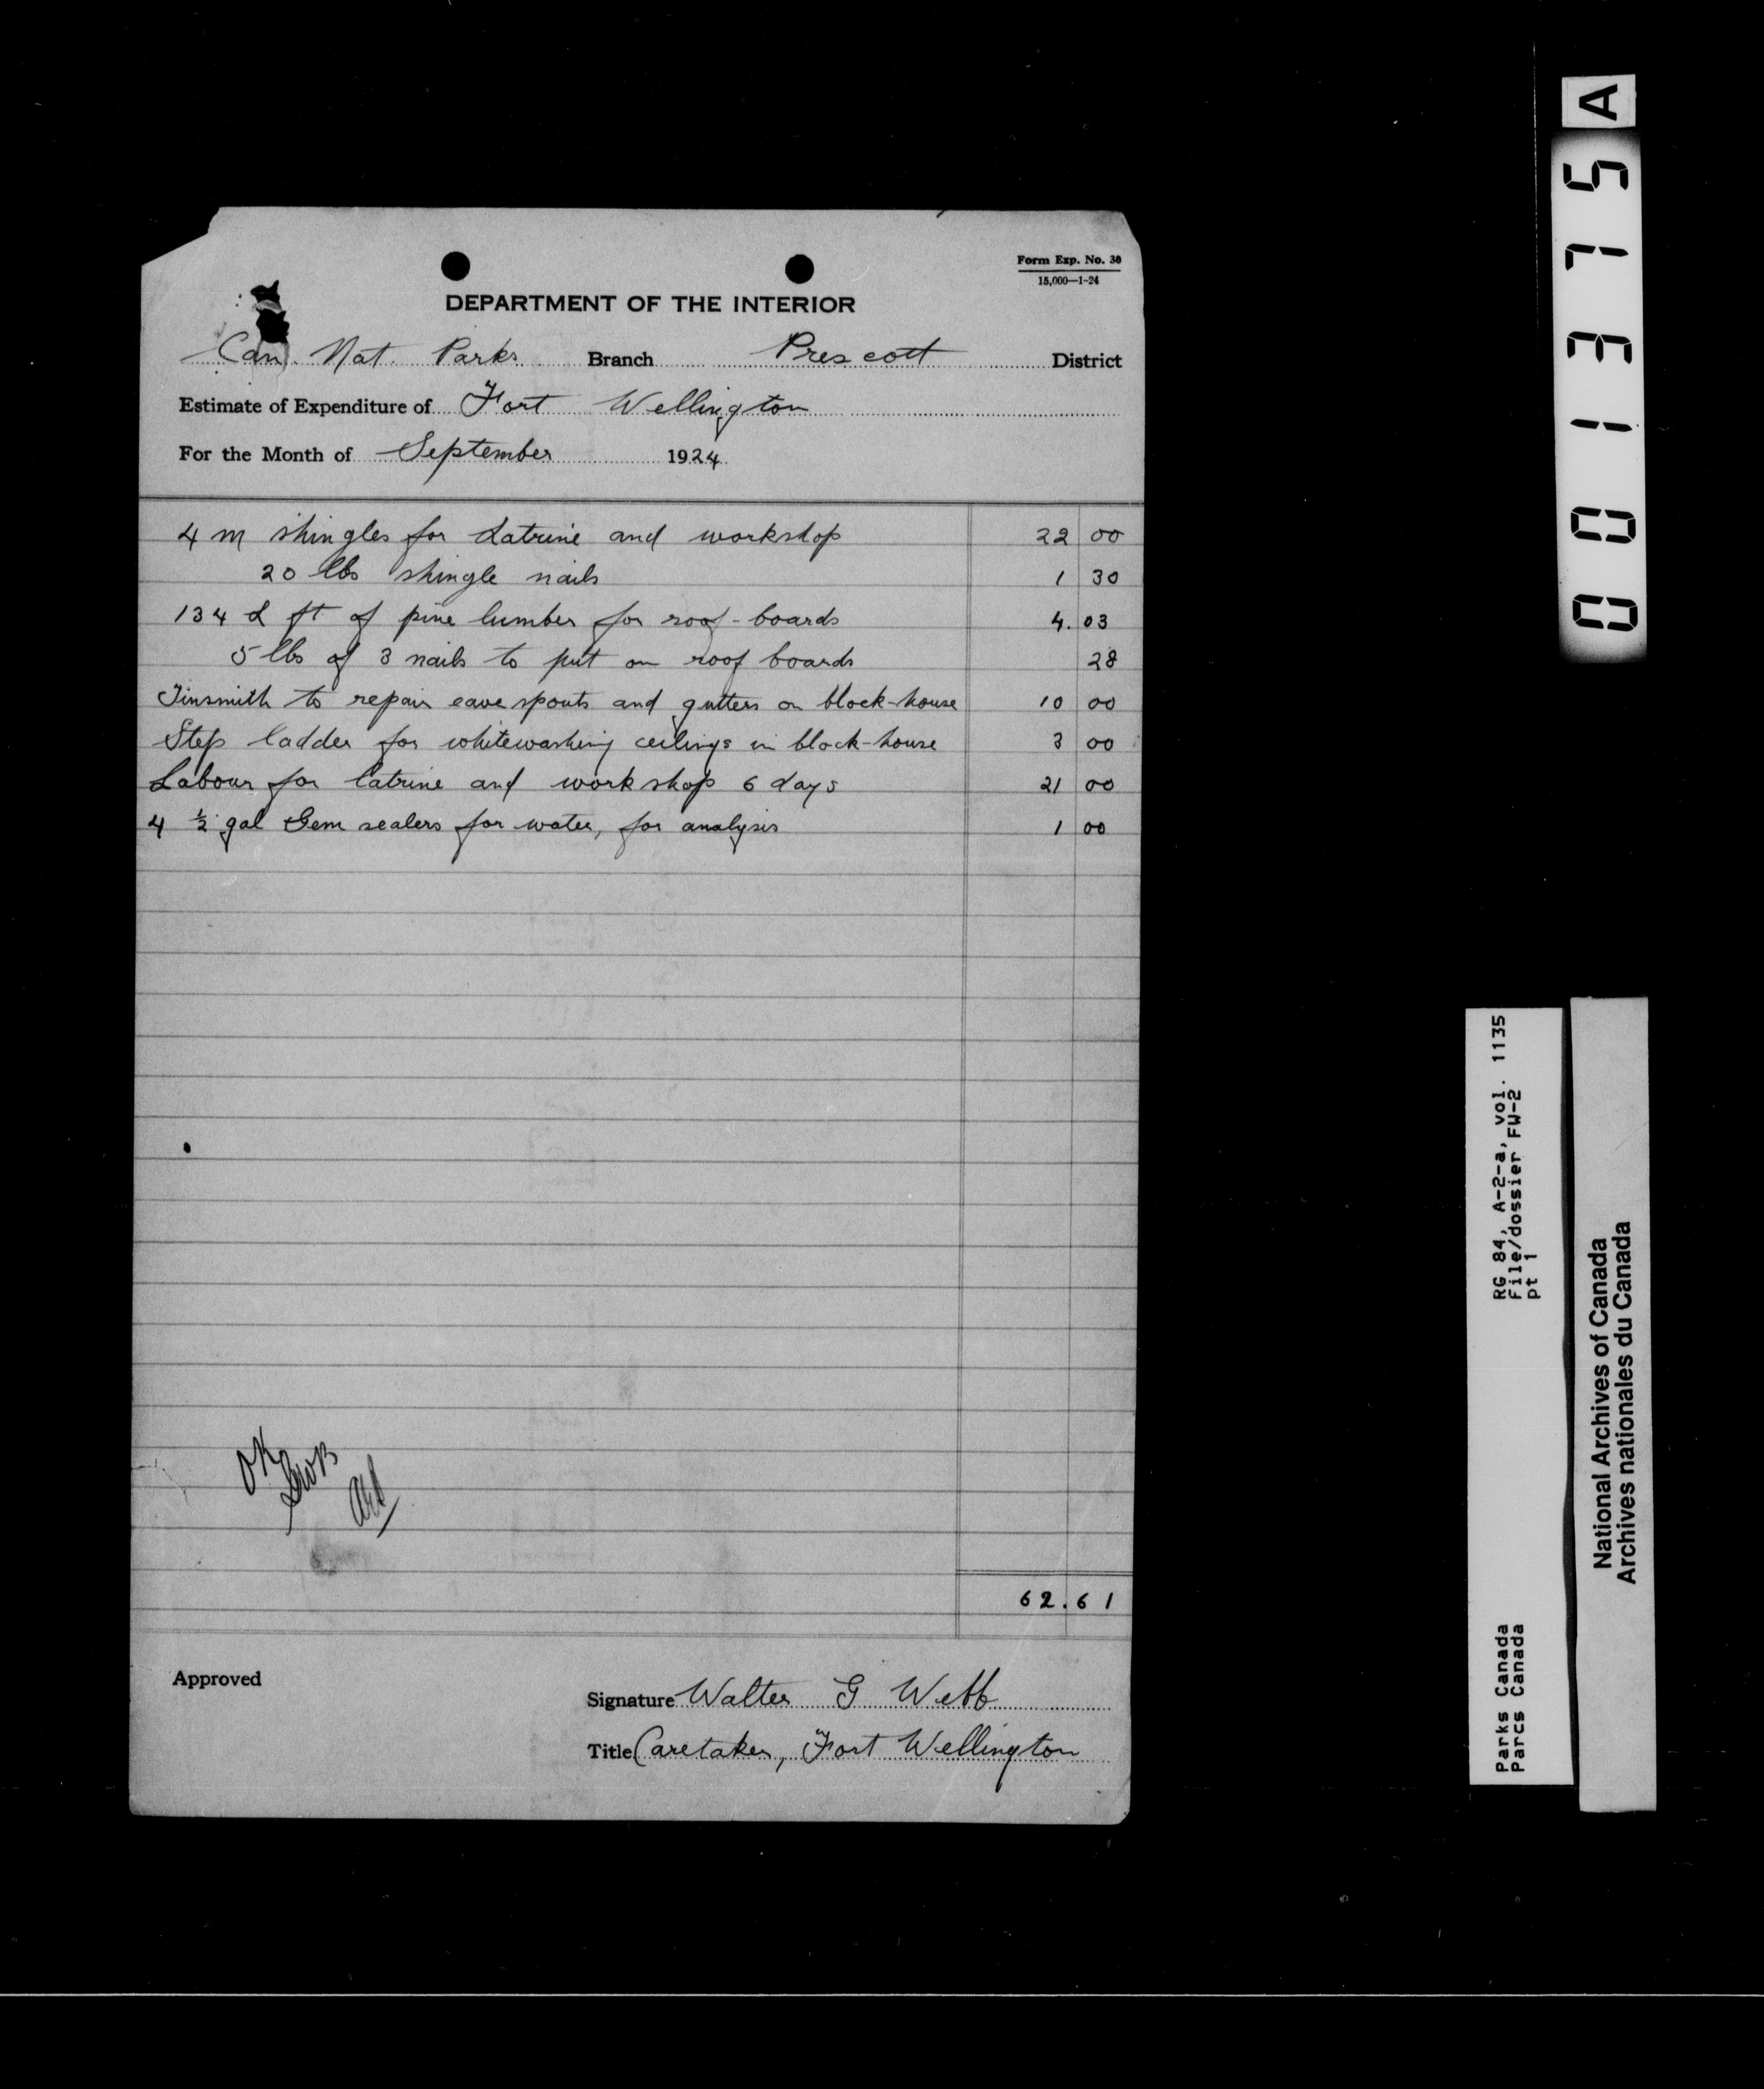 Form Exp. No. 30
15,000—1-24
DEPARTMENT OF THE INTERIOR
Can. Nat. Parks Branch Prescott District
Estimate of Expenditure of Fort Wellington
For the Month of September 1924
4 m shingles for Latrine and workshop 22 00
20 lbs shingle nails 1 30
134 L ft of pine lumber for roof-boards 4.03
5 lbs of 3 nails to put on roof boards 28
Tinsmith to repair eave spouts and gutters on block-house 10 00
Step ladder for whitewashing ceilings in block-house 3 00
Labour for latrine and workshop 6 days 21 00
4 ½ gal Gem sealers for water, for analysis 1 00
OK
62.61
Approved
Signature Walter G Webb
Title Caretaker, Fort Wellington
001375 A
RG 84, A-2-a, vol. 1135
File/dossier FW-2
pt 1
Parks Canada
Parcs Canada
National Archives of Canada
Archives nationales du Canada